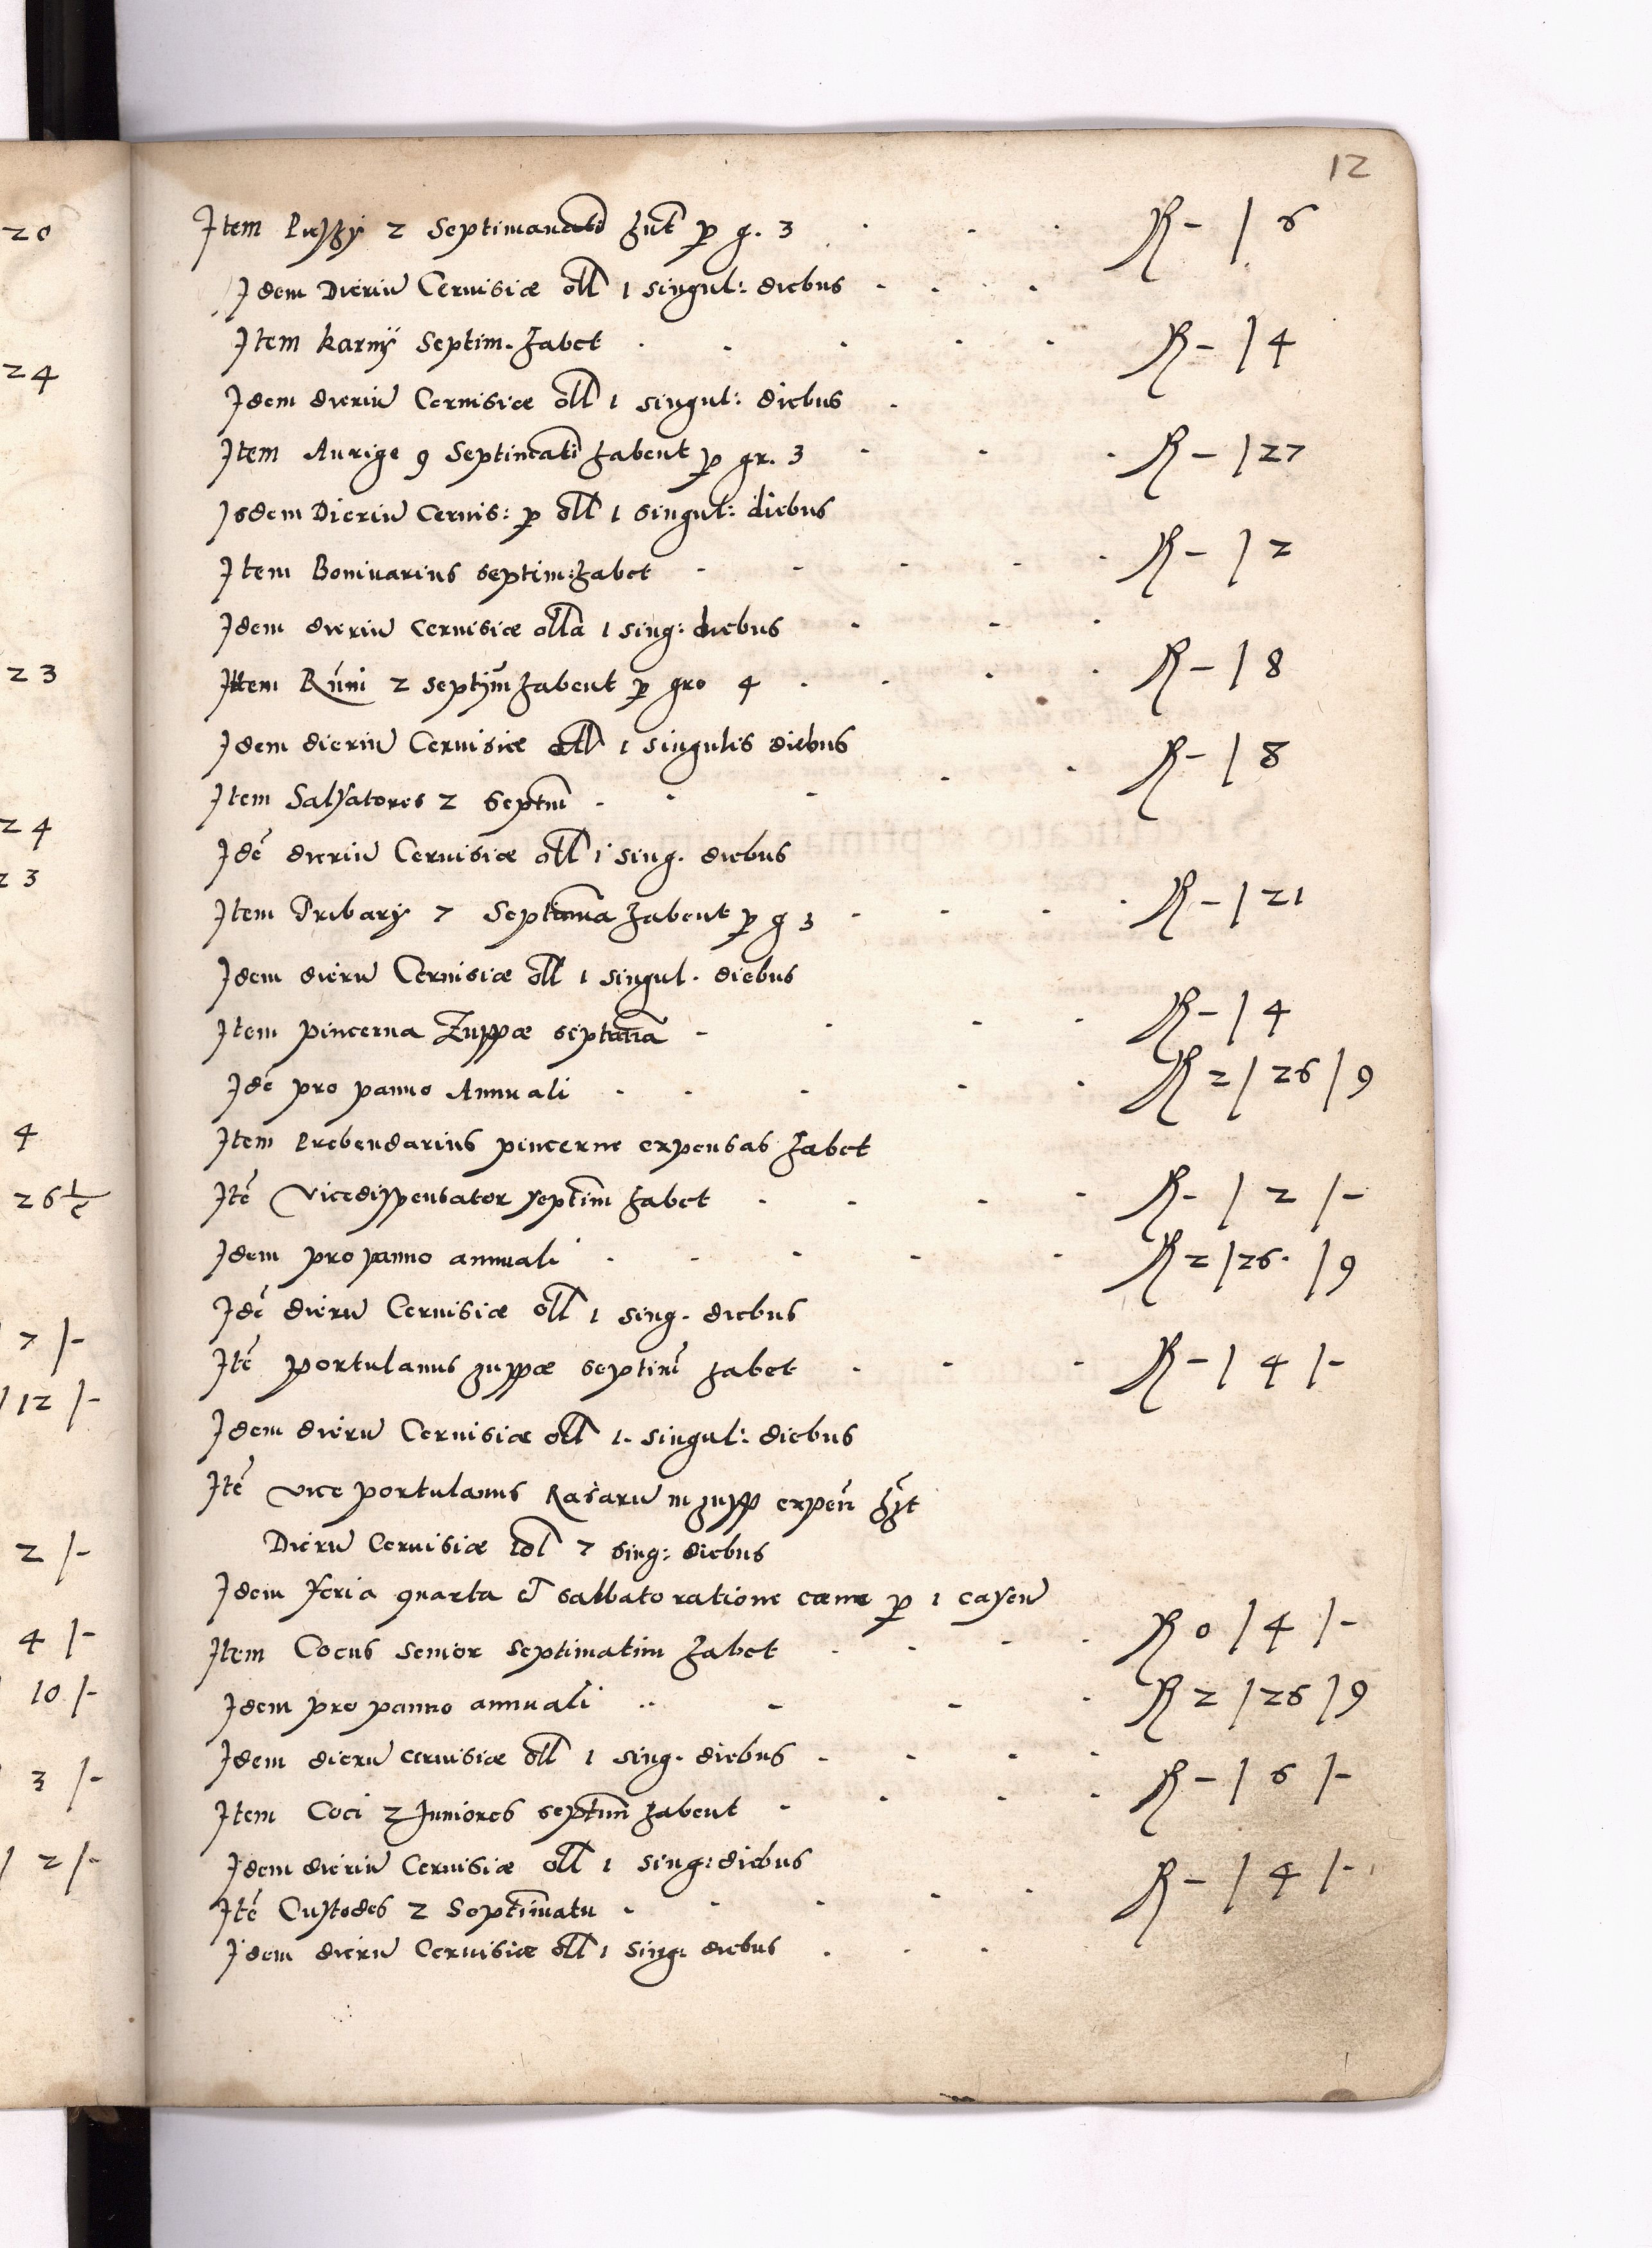 12
Item Puszy 2 Septimanatī hn̄t ꝑ g. 3 R - | 6
Idem Dieriū Cervisiæ oll 1 singul: diebus
Item karny Septim. habet R - | 4
Idem dieriū Cervisiæ oll 1 singul: diebus
Item Aurige 9 Septimatī habent ꝑ gr. 3 R - | 27
Isdem Dieriū Cervis: ꝑ oll 1 singul: diebus
Item Bonivarius septim: habet R - | 2
Idem dieriū cervisiæ ollā 1 sing: diebus
Item Rūni 2 septim̄ habent ꝑ gro 4 R - | 8
Idem dieriū Cervisiæ oll 1 singulis diebus
Item Salsatores 2 Septim̄ R - | 8
Idē dieriū Cervisiæ oll 1 sing. diebus
Item Tribary 7 Septimā habent ꝑ g 3 R - | 21
Idem dierū Cervisiæ oll 1 singul. diebus
Item pincerna Zuppæ septimā R - | 4
Idē pro panno Annuali R 2 | 26 | 9
Item Prebendarius pincerne expensas habet
Itē Vicedispensator septim̄ habet R - | 2 | -
Idem pro panno annuali R 2 | 26 | 9
Idē dierū Cervisiæ oll 1 sing. diebus
Itē portulanus zuppæ septim̄ habet R - | 4 | -
Idem dierū Cervisiæ oll 1. singul: diebus
Itē vice portulanus Rasarū in zupp expen̄ hz̄t
Dierū Cervisiæ tol 7 sing: diebus
Idem feria quarta et sabbato ratione cœne ꝑ 1 caseū
Item Cocus senior septimatim habet R 0 | 4 | -
Idem pro panno annuali R 2 | 26 | 9
Idem dierū cervisiæ oll 1 sing. diebus
Item Coci 2 Juniores septim̄ habent R - | 6 | -
Idem dieriū Cervisiæ oll 1 sing: diebus
Itē Custodes 2 Septimatū R - | 4 | -
Idem dierū Cervisiæ oll 1 sing. diebus
20
24
23
24
23
4
26
7 | -
| 12 | -
2 | -
4 | -
10 | -
3 | -
| 2 | -